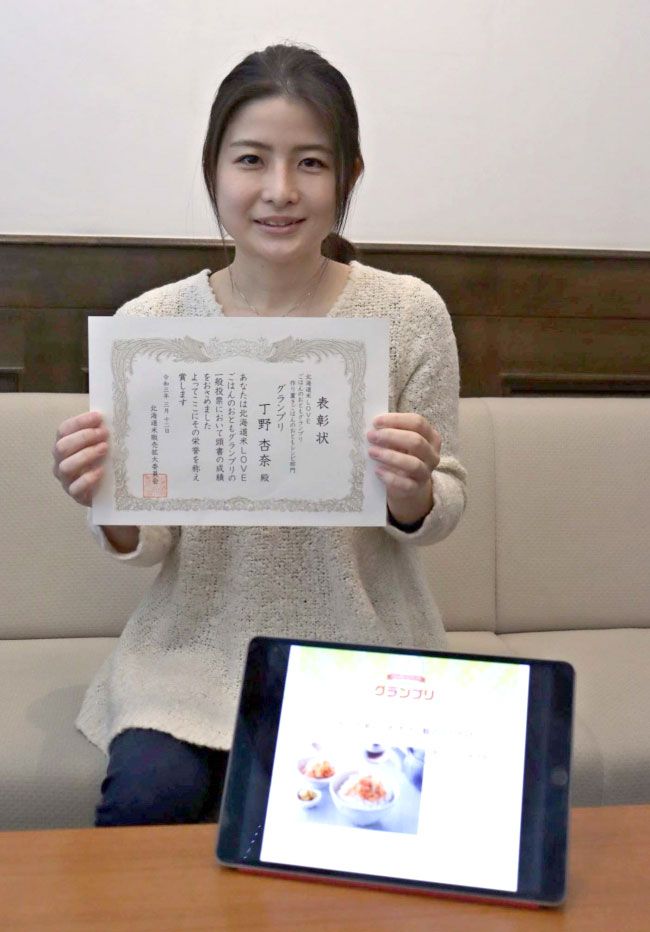 表彰状
北海道米LOVE
ごはんのおともグランプリ
作り置きごはんのおともレシピ部門
グランプリ
丁野 杏奈 殿
あなたは北海道米LOVE
ごはんのおともグランプリの
一般投票において頭書の成績
をおさめました
よってここにその栄誉を称え
賞します
令和三年 三月 十二日
北海道米販売拡大委員会
グランプリ